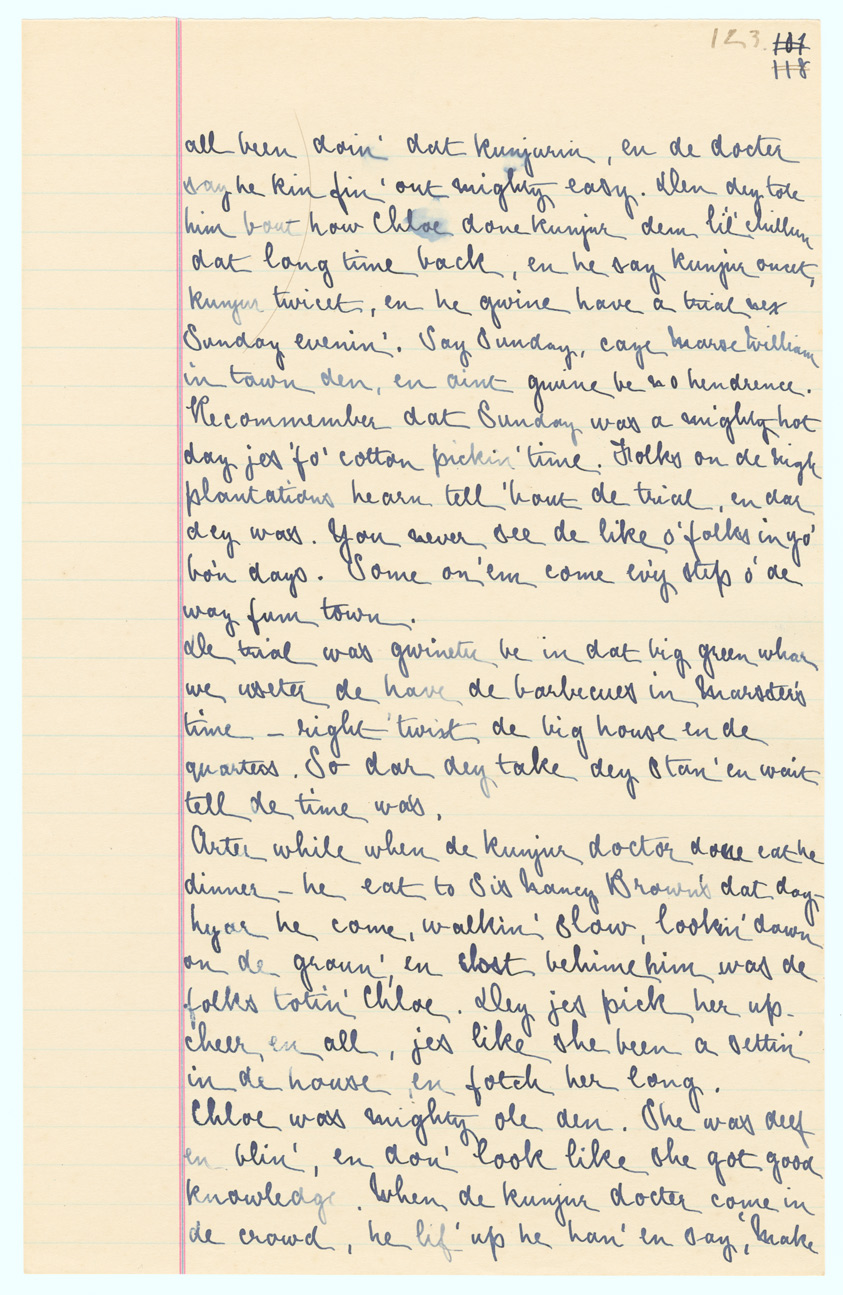 123. 101
118
all been doin' dat kunjurin, en de docter
say he kin fin' out mighty easy. Den dey tole
him bout how Chloe done kunjur dem lil' chillun
dat long time back, en he say kunjur oncet,
kunjur twicet, en he gwine have a trial nex
Sunday evenin'. Say Sunday, caze Marse William
in town den, en aint gwine be no hendrence.
Recommember dat Sunday was a mighty hot
day jes 'fo' cotton pickin' time. Folks on de nigh
plantations hearn tell 'bout de trial, en dar
dey was. You never see de like o' folks in yo'
bo'n days. Some on 'em come ev'y step o' de
way fum town.
De trial was gwineter be in dat big green whar
we useter de have de barbecues in Marster's
time – right 'twixt de big house en de
quarters. So dar dey take dey stan' en wait
tell de time was.
Arter while when de kunjur doctor done eat he
dinner – he eat to Sis Nancy Brown's dat day –
hyar he come, walkin' slow, lookin' down
on de groun', en clost behime him was de
folks totin' Chloe. Dey jes pick her up –
cheer en all, jes like she been a settin'
in de house, en fotch her long.
Chloe was mighty ole den. She was deef
en blin', en don' look like she got good
knowledge. When de kunjur docter come in
de crowd, he lif' up he han' en say, "Make